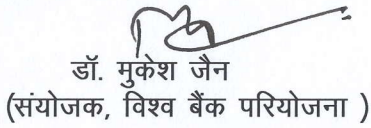 डॉ. मुकेश जैन
(संयोजक, विश्व बैंक परियोजना )